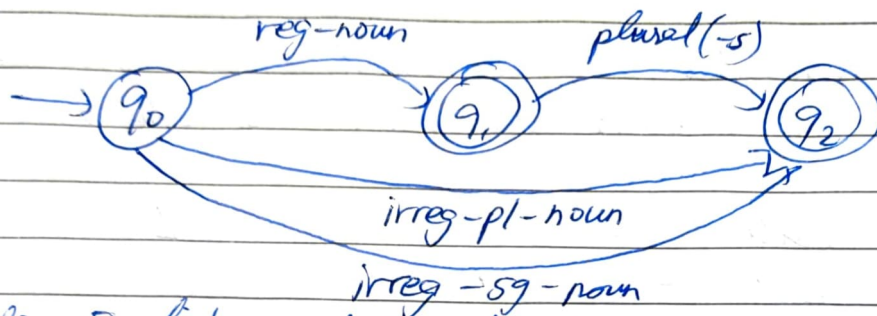 reg-noun plural(-s)
q0 q1 q2
irreg-pl-noun
irreg-sg-noun